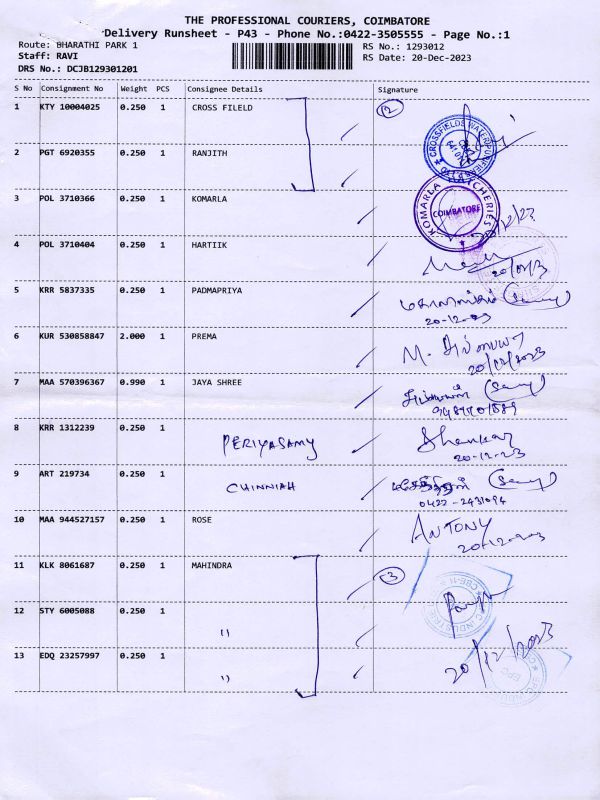 THE PROFESSIONAL COURIERS, COIMBATORE
Delivery Runsheet - P43 - Phone No.:0422-3505555 - Page No.:1
Route: BHARATHI PARK 1
RS No.: 1293012
Staff: RAVI
RS Date: 20-Dec-2023
DRS No.: DCJB129301201
S No Consignment No Weight PCS Consignee Details Signature
1 KTY 10004025 0.250 1 CROSS FILELD
2 PGT 6920355 0.250 1 RANJITH
3 POL 3710366 0.250 1 KOMARLA
KOMARLA HATCHERIES COIMBATORE
4 POL 3710404 0.250 1 HARTIIK
5 KRR 5837335 0.250 1 PADMAPRIYA
20-12-2023
6 KUR 530858847 2.000 1 PREMA
M.
20/12/2023
7 MAA 570396367 0.990 1 JAYA SHREE
8 KRR 1312239 0.250 1 PERIYASAMY Shankar
20-12-23
9 ART 219734 0.250 1 CHINNIAH
0422-2431094
10 MAA 944527157 0.250 1 ROSE ANTONY
20-12-2023
11 KLK 8061687 0.250 1 MAHINDRA
12 STY 6005088 0.250 1 "
13 EDQ 23257997 0.250 1 "
20/12/2023